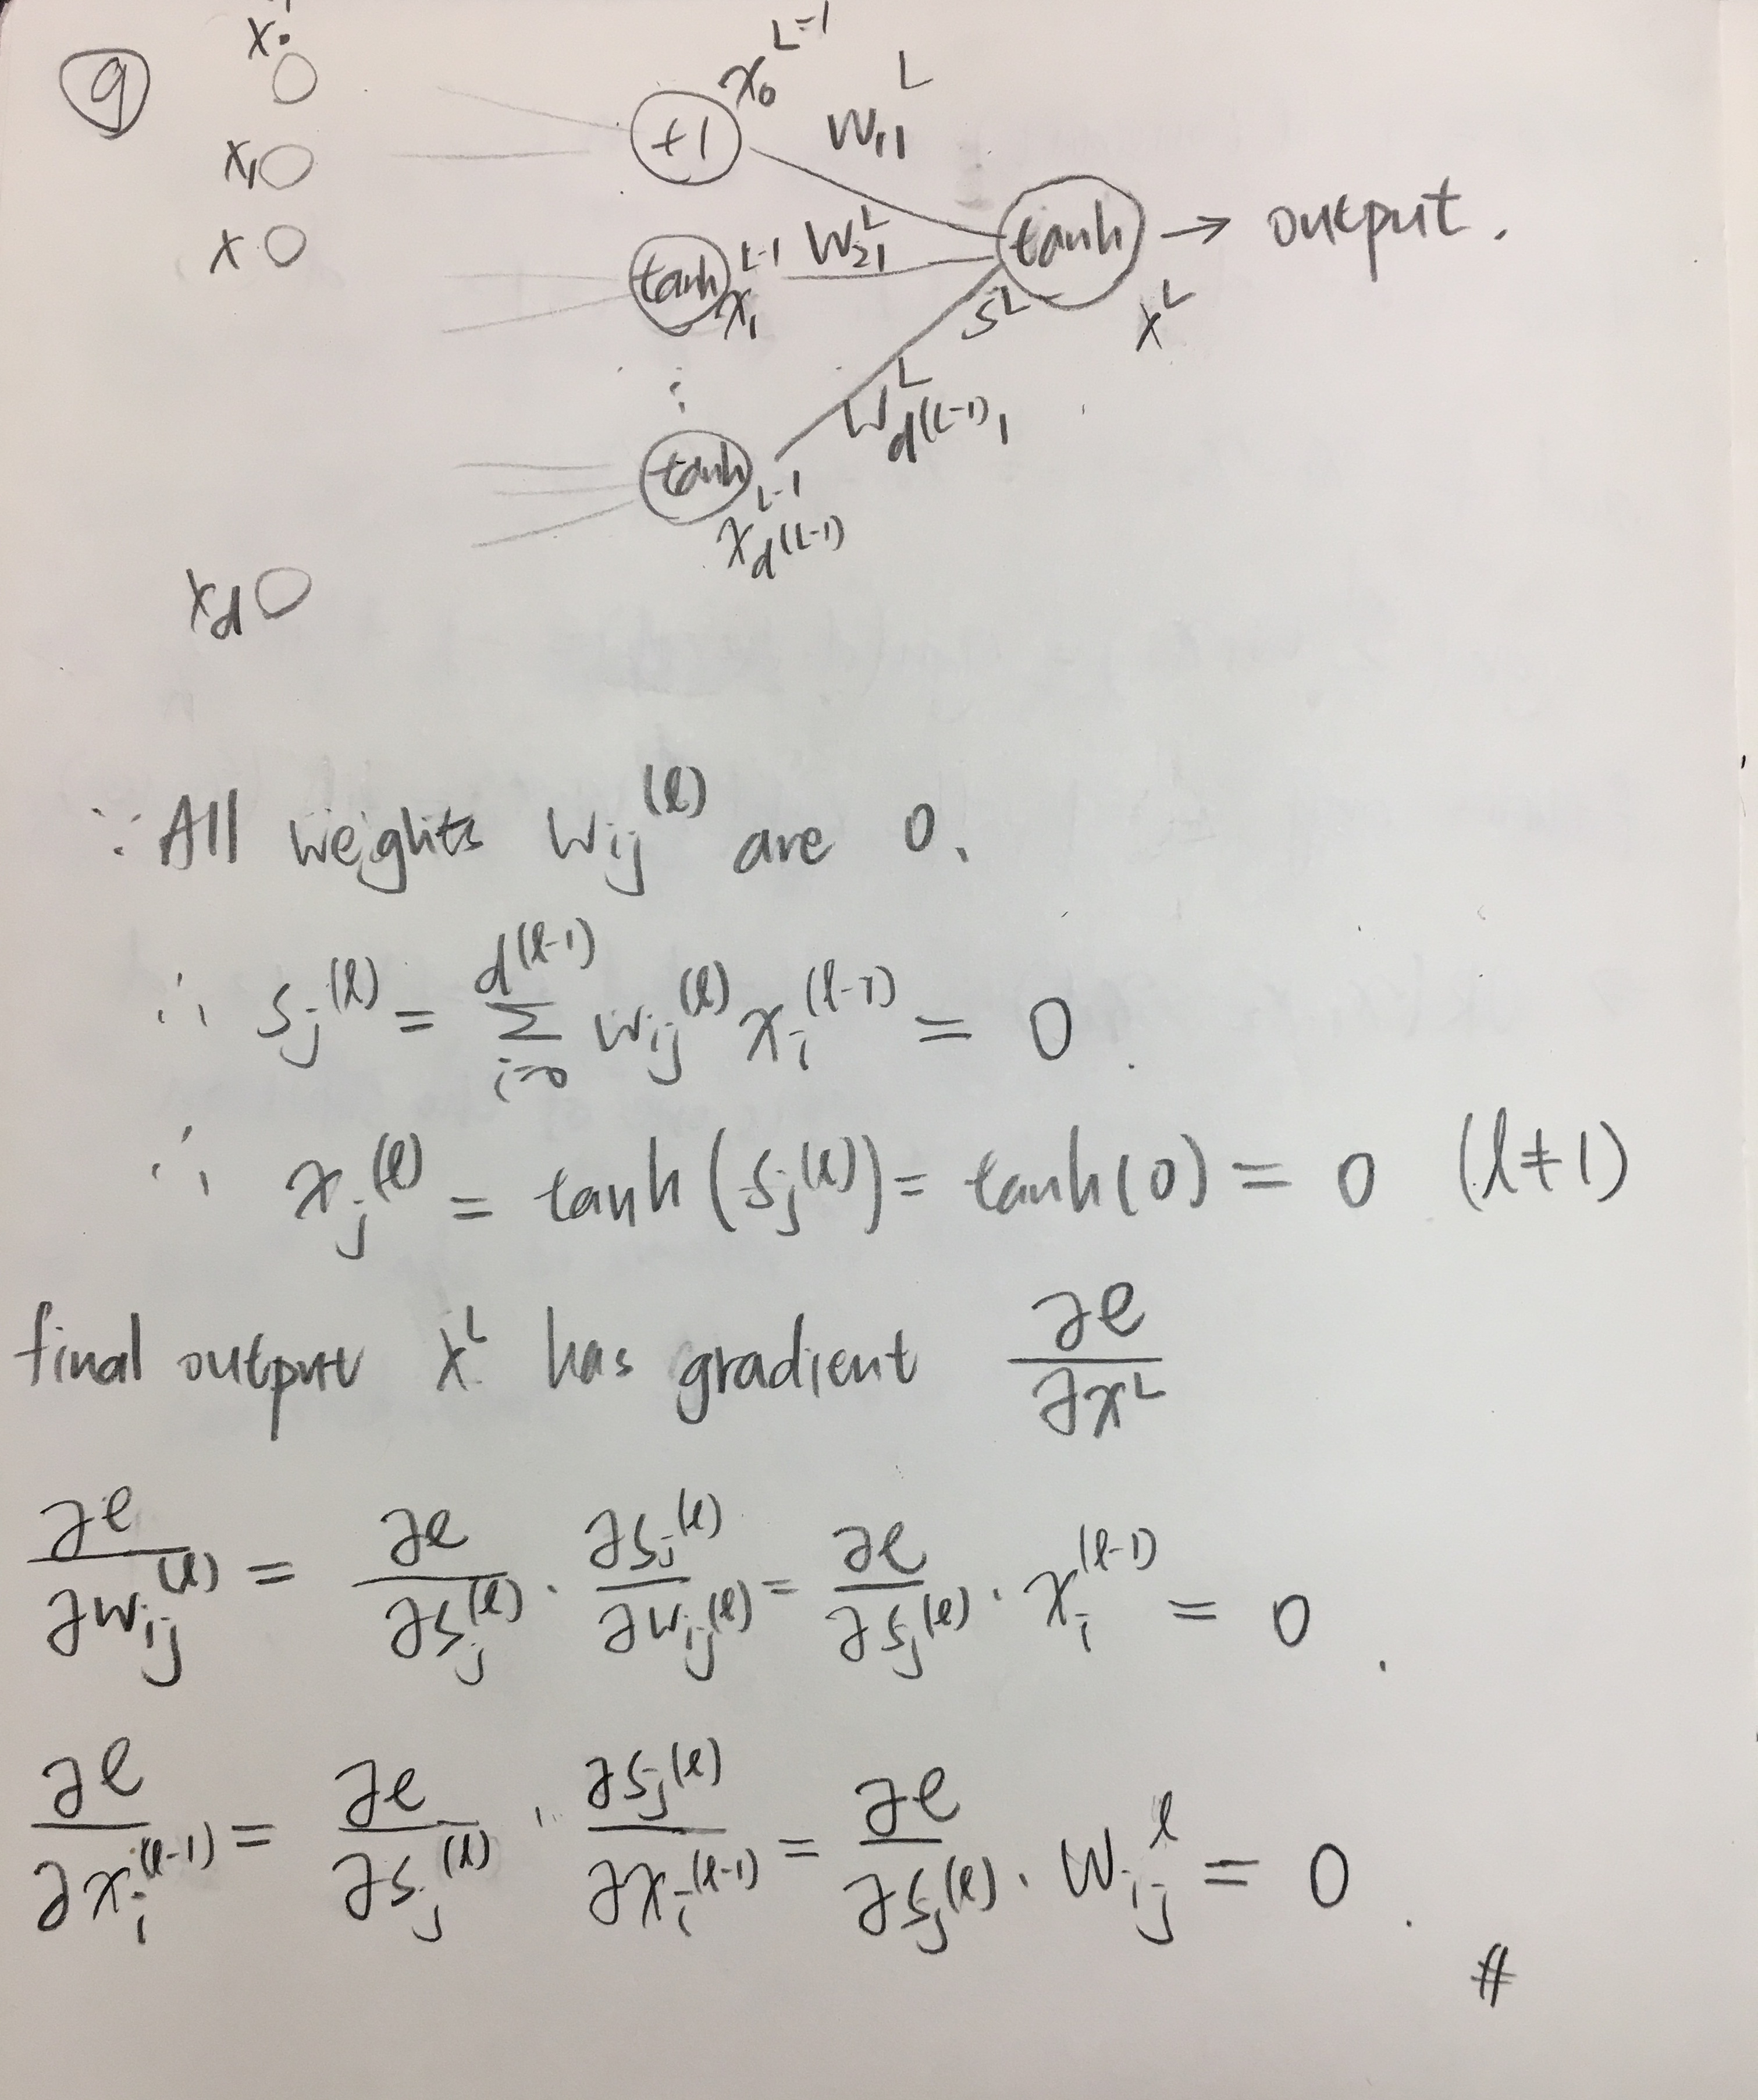 ⑨
x₀
x₁
x
x_d
+1 x₀^{L-1} w₁₁^L
tanh x₁^{L-1} w₂₁^L
tanh → output.
s^L x^L
⋮
w_{d^{(L-1)}1}^L
tanh x_{d^{(L-1)}}^{L-1}
∵ All weights w_{ij}^{(ℓ)} are 0.
∴ s_j^{(ℓ)} = Σ_{i=0}^{d^{(ℓ-1)}} w_{ij}^{(ℓ)} x_i^{(ℓ-1)} = 0.
∴ x_j^{(ℓ)} = tanh(s_j^{(ℓ)}) = tanh(0) = 0 (ℓ≠1)
final output x^L has gradient ∂e/∂x^L
∂e/∂w_{ij}^{(ℓ)} = ∂e/∂s_j^{(ℓ)} · ∂s_j^{(ℓ)}/∂w_{ij}^{(ℓ)} = ∂e/∂s_j^{(ℓ)} · x_i^{(ℓ-1)} = 0.
∂e/∂x_i^{(ℓ-1)} = ∂e/∂s_j^{(ℓ)} · ∂s_j^{(ℓ)}/∂x_i^{(ℓ-1)} = ∂e/∂s_j^{(ℓ)} · w_{ij}^ℓ = 0.
#